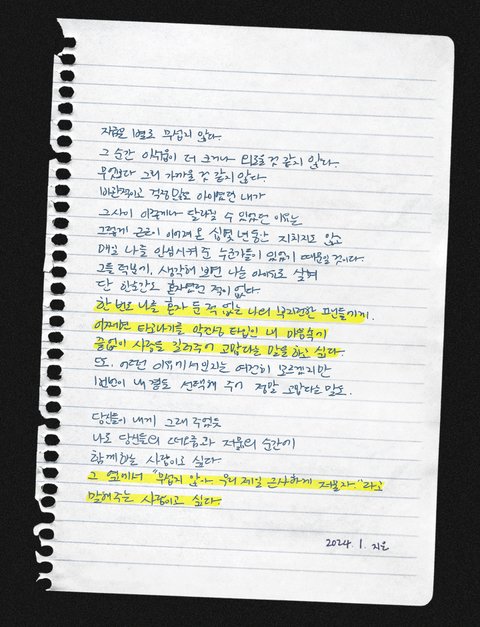 지금은 별로 무섭지 않다.
그 순간 아쉬움이 더 크거나 외로울 것 같지 않다.
무엇보다 그리 가까울 것 같지 않다.
비관적이고 걱정 많던 아이였던 내가
그 사이 이렇게나 달라질 수 있었던 이유는
그렇게 근근이 이어져 온 십몇 년 동안 지치지도 않고
매일 나를 안심시켜 준 누군가들이 있었기 때문일 것이다.
그들 덕분에, 생각해 보면 나는 아이유로 살며
단 한순간도 혼자였던 적이 없다.
한 번도 나를 혼자 둔 적 없는 나의 부지런한 팬들에게.
어쩌면 타고나기를 악건성 타입인 내 마음속에
끝없이 사랑을 길러주어 고맙다는 말을 하고 싶다.
또, 어떤 이유에서인지는 여전히 모르겠지만
매번 내 곁을 선택해 주어 정말 고맙다는 말도.
당신들이 내게 그래 주었듯
나도 당신들의 떠오름과 저묾의 순간에
함께하는 사람이고 싶다.
그 옆에서 "무섭지 않아. 우리 제일 근사하게 저물자." 라고
말해주는 사람이고 싶다.
2024. 1. 지은